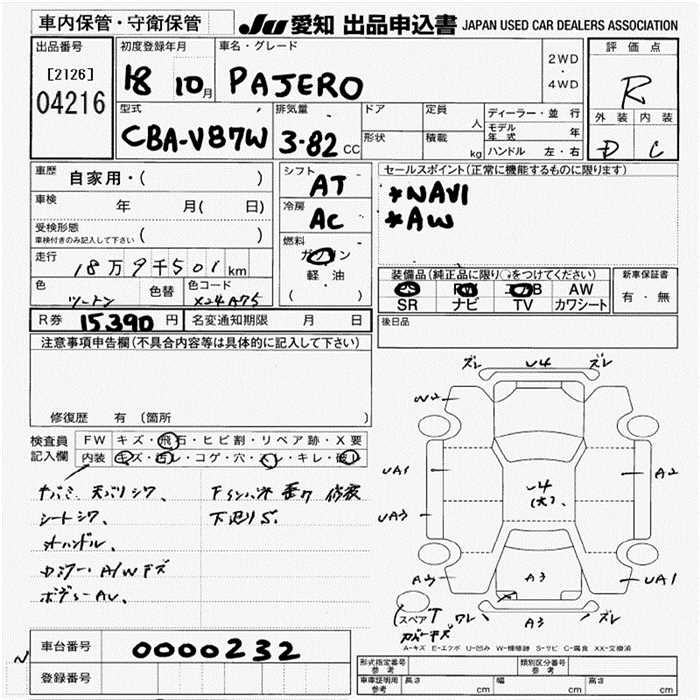 車内保管・守衛保管
JU 愛知 出品申込書 JAPAN USED CAR DEALERS ASSOCIATION
出品番号
[2126]
04216
初度登録年月
18 10月
車名・グレード
PAJERO
2WD
・
4WD
評価点
R
外装 内装
D C
型式
CBA-V87W
排気量
3.82 CC
ドア
定員
人
形状
積載
kg
ディーラー・並行
モデル年式 年
ハンドル 左・右
車歴 自家用・( )
車検 年 月( 日)
受検形態
車検付きのみ記入して下さい ( )
走行 18万9千501km
色 色替 色コード
ツートン X24A75
シフト
AT
冷房
AC
燃料
ガソリン
・
軽油
( )
セールスポイント(正常に機能するものに限ります)
*NAVI
*AW
装備品(純正品に限り○をつけてください)
PS PW エアB AW
SR ナビ TV カワシート
新車保証書
有・無
後日品
R券 15,390円 名変通知期限 月 日
注意事項申告欄(不具合内容等は具体的に記入して下さい)
修復歴 有(箇所 )
検査員記入欄
FW キズ・飛石・ヒビ割・リペア跡・X要
内装 キズ・汚レ・コゲ・穴・スレ・キレ・破レ
天バリシワ
シートシワ、
オハンドル、
ロミラー・A/Wキズ
ボディーAU、
修変
下廻りS.
ズレ U4 ズレ
W2
UA1
UA3
A2
U4
(大)、
A3
UA1
(スペアT
カバーキズ
ワレ A3 ズレ
A-キズ E-エクボ U-凹み W-補修跡 S-サビ C-腐食 XX-交換済
車台番号 0000232
登録番号
N
形式指定番号
参考
類別区分番号
参考
車庫証明用
参考
長さ cm
幅 cm
高さ cm